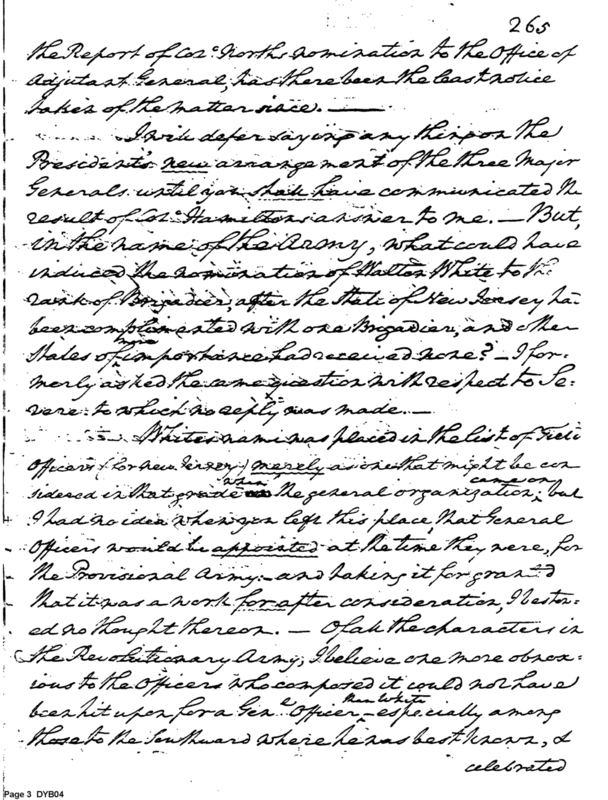 265
the Report of Colo. Norths nomination to the Office of
Adjutant General, has there been the least notice
taken of the matter since. —
I will defer saying any thing on the
President's new arrangement of the three Major
Generals until you shall have communicated the
result of Colo. Hamiltons answer to me. — But,
in the name of the Army, what could have
induced the nomination of Walton White to the
rank of Brigadier, after the State of New Jersey had
been complimented with one Brigadier, and other
States of more importance had received none? — I for-
merly asked the same question with respect to Se-
vere: to which no reply was made. —
Whites name was placed in the list of Field
Officers (for New Jersey) merely as one that might be con
sidered in that grade when the general organization came on; but
I had no idea when you left this place, that General
Officers would be appointed at the time they were, for
the Provisional Army — and taking it for granted
that it was a work for after consideration, I bestow-
ed no thought thereon. — Of all the characters in
the Revolutionary Army, I believe one more obnox-
ious to the Officers who composed it could not have
been hit upon for a Genl. Officer than White — especially among
those to the Southward where he was best known, &
celebrated
Page 3 DYB04